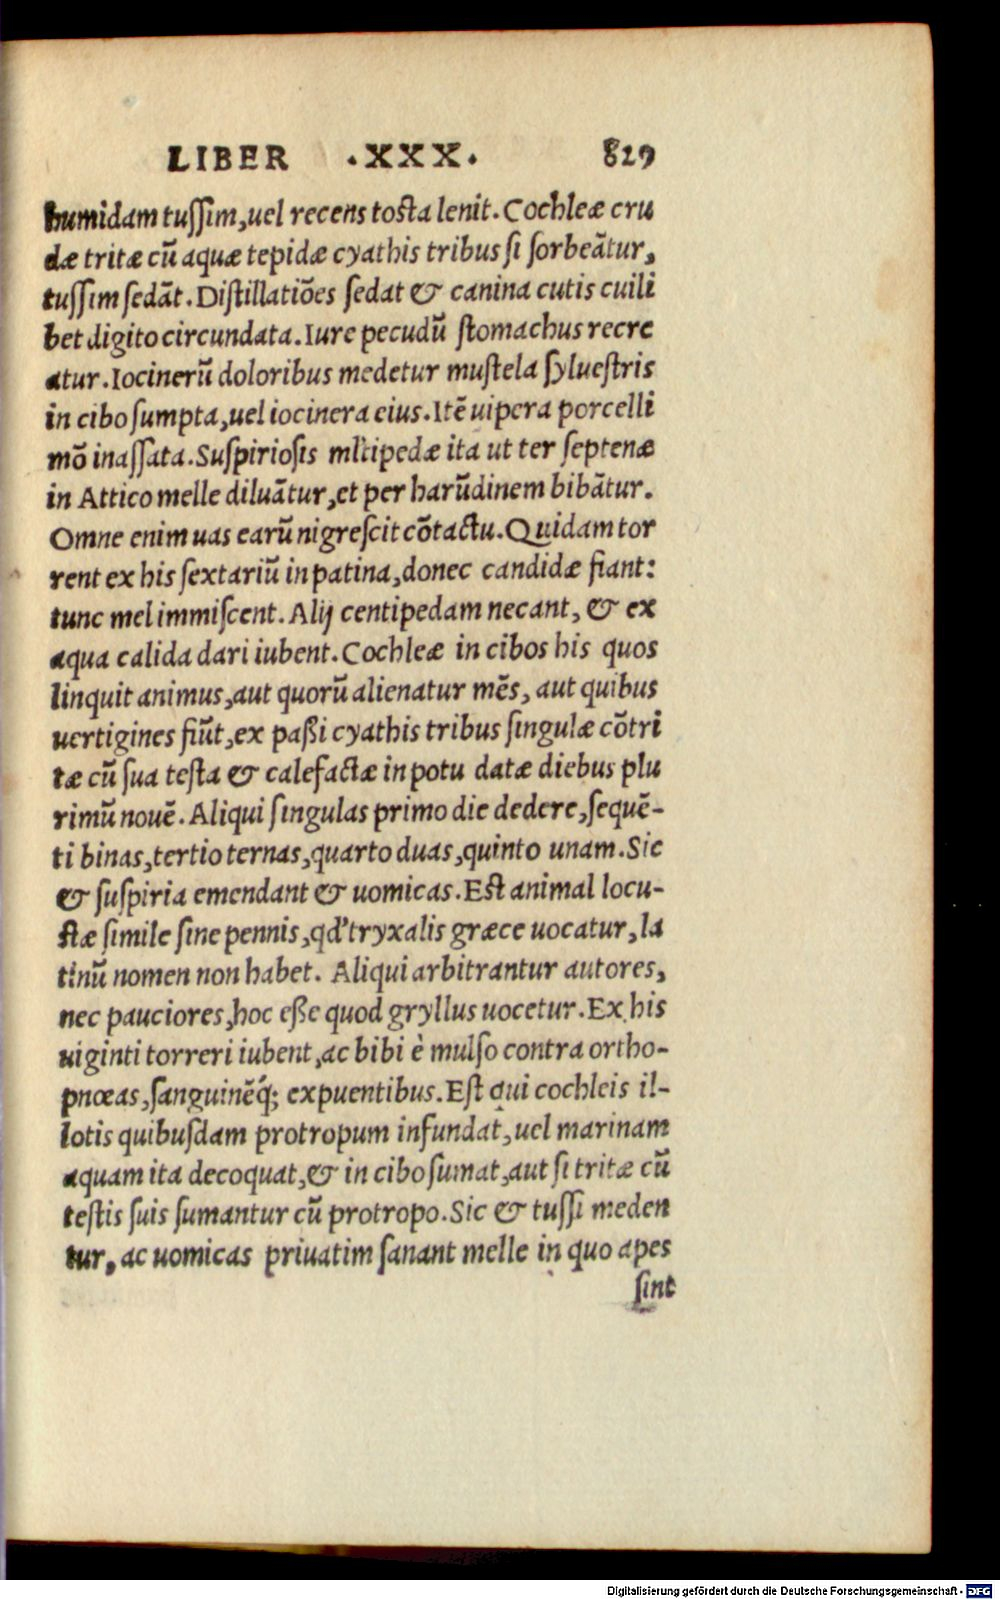 LIBER .XXX. 829
humidam tußim, uel recens tosta lenit. Cochleæ cru
dæ tritæ cũ aquæ tepidæ cyathis tribus ſi ſorbeãtur,
tuſſim ſedãt. Diſtillatiões ſedat & canina cutis cuili
bet digito circundata. Iure pecudũ ſtomachus recre
atur. Iocinerũ doloribus medetur muſtela ſylueſtris
in cibo ſumpta, uel iocinera eius. Itẽ uipera porcelli
mõ inaſſata. Suſpirioſis mľtipedæ ita ut ter ſeptenæ
in Attico melle diluãtur, et per harũdinem bibãtur.
Omne enim uas earũ nigreſcit cõtactu. Quidam tor
rent ex his ſextariũ in patina, donec candidæ fiant:
tunc mel immiſcent. Alij centipedam necant, & ex
aqua calida dari iubent. Cochleæ in cibos his quos
linquit animus, aut quorũ alienatur mẽs, aut quibus
uertigines fiũt, ex paßi cyathis tribus ſingulæ cõtri
tæ cũ ſua teſta & calefactæ in potu datæ diebus plu
rimũ nouẽ. Aliqui ſingulas primo die dedere, ſequẽ-
ti binas, tertio ternas, quarto duas, quinto unam. Sic
& ſuſpiria emendant & uomicas. Eſt animal locu-
ſtæ ſimile ſine pennis, qď tryxalis græce uocatur, la
tinũ nomen non habet. Aliqui arbitrantur autores,
nec pauciores, hoc eße quod gryllus uocetur. Ex his
uiginti torreri iubent, ac bibi è mulſo contra ortho-
pnœas, ſanguinẽq́; expuentibus. Eſt qui cochleis il-
lotis quibuſdam protropum infundat, uel marinam
aquam ita decoquat, & in cibo ſumat, aut ſi tritæ cũ
teſtis ſuis ſumantur cũ protropo. Sic & tuſſi meden
tur, ac uomicas priuatim ſanant melle in quo apes
ſint
Digitalisierung gefördert durch die Deutsche Forschungsgemeinschaft - DFG